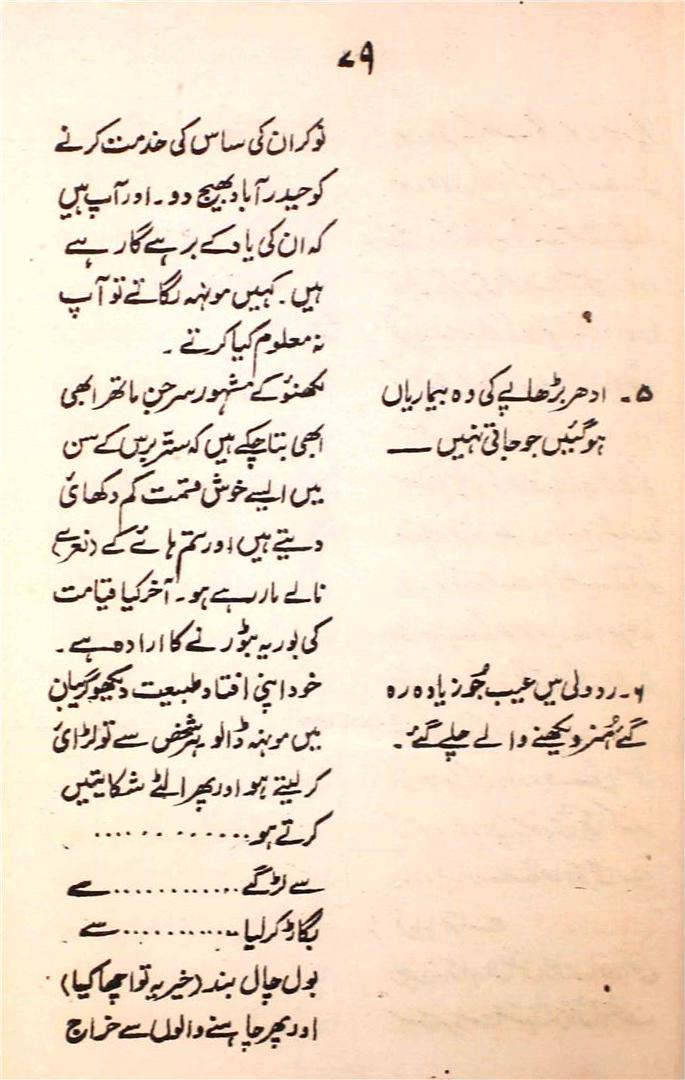 ۷۹
نوکر ان کی ساس کی خدمت کرنے
کو حیدرآباد بھیج دو۔ اور آپ ہیں
کہ ان کی یاد کے برہے گا رہے
ہیں۔ کہیں مونہہ لگاتے تو آپ
نہ معلوم کیا کرتے ۔
۵۔ ادھر بڑھاپے کی وہ بیماریاں
ہو گئیں جو جاتی نہیں ——
لکھنؤ کے مشہور سرجن ماتھر ابھی
ابھی بتا چکے ہیں کہ ستّر برس کے سن
میں ایسے خوش قسمت کم دکھائی
دیتے ہیں اور تم ہائے کے (نعرے)
نالے مار رہے ہو۔ آخر کیا قیامت
کی بوریہ بٹورنے کا ارادہ ہے۔
۶۔ ردولی میں عیب جُو زیادہ رہ
گئے ہُنر دیکھنے والے چلے گئے۔
خود اپنی افتاد طبیعت دیکھو گریبان
میں مونہہ ڈالو ہر شخص سے تو لڑائی
کر لیتے ہو اور پھر الٹے شکایتیں
کرتے ہو............
سے لڑ گئے............ سے
بگاڑ کر لیا.......... سے
بول چال بند (خیر یہ تو اچھا کیا)
اور پھر چاہنے والوں سے خراج